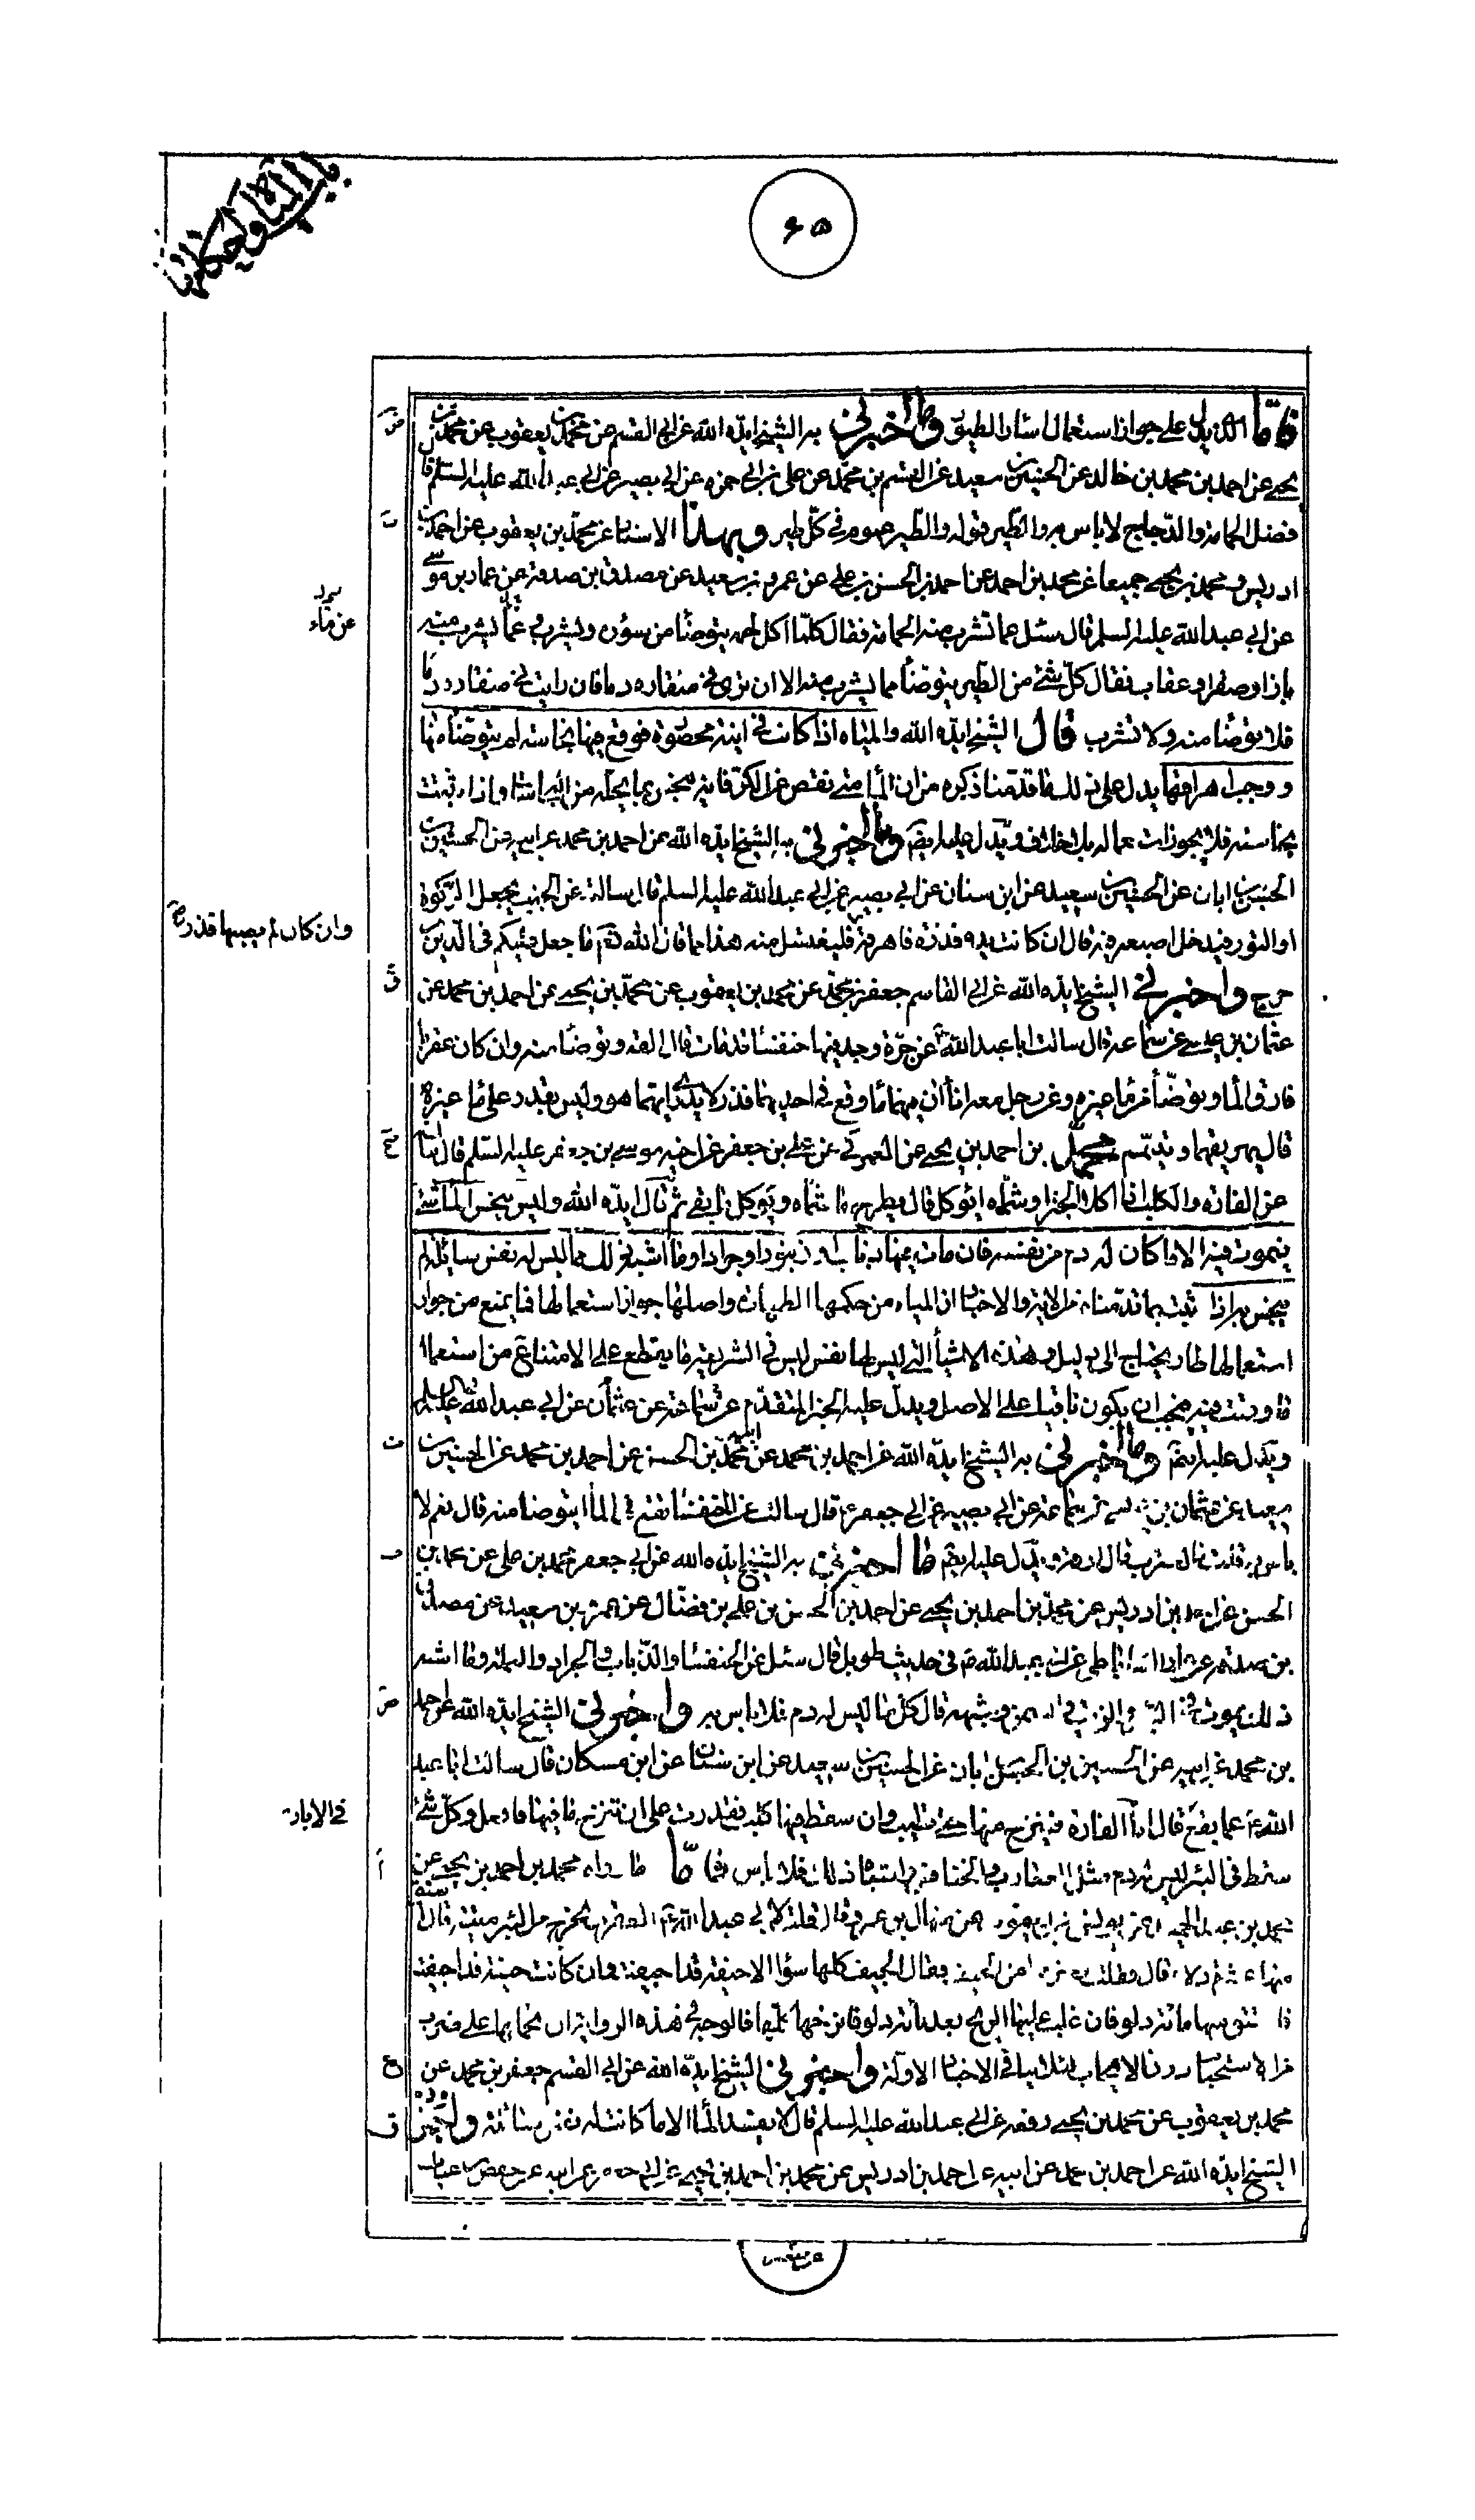 باب المياه واحكامها
٦٥
فامّا الذي يدل على جواز استعمال اسئار الطيور ما اخبرني به الشيخ ايّده الله عن ابي القسم عن محمد بن يعقوب عن محمد بن
يحيى عن احمد بن محمد بن خالد عن الحسين بن سعيد عن القسم بن محمّد عن علي بن ابي حمزه عن ابي بصير عن ابي عبد الله عليه السلم قال
فضل الحمامة والدّجاج لا باس به والطّير وقوله والطّير عموم في كلّ طير وبهذا الاسناد عن محمّد بن يعقوب عن احمد بن
ادريس ومحمد بن يحيى جميعا عن محمد بن احمد عن احمد بن الحسن بن علي عن عمرو بن سعيد عن مصدق بن صدقة عن عمار بن موسى
عن ابي عبد الله عليه السلم قال سئل عما تشرب منه الحمامة فقال كلّما اكل لحمه يتوضأ من سؤره ويشرب عمّا يشرب منه
عن ماء
باز او صقر او عقاب فقال كلّ شئ من الطّير يتوضّأ مما يشرب منه الا ان ترى في منقاره دما فان رايت في منقاره دما
فلا توضأ منه ولا تشرب قال الشيخ ايّده الله والمياه اذا كانت في انية محصورة فوقع فيها نجاسة لم يتوضّأ منها
ووجب اهراقها يدل على ذلك ما قدّمنا ذكره من ان الماء متى نقص عن الكرّ فانه ينجس بما يحلّه من النجاسات واذا ثبتت
نجاسته فلا يجوز استعماله بلا خلاف ويدل عليه ايضا ما اخبرني به الشيخ ايّده الله عن احمد بن محمد عن ابيه عن الحسين بن
الحسن بن ابان عن الحسين بن سعيد عن ابن سنان عن ابي بصير عن ابي عبد الله عليه السلم قال سالته عن الجنب يجعل الركوة
او التور فيدخل اصبعه فيه قال ان كانت يده قذرة فاهرقه فليغتسل منه هذا مما قال الله تعم ما جعل عليكم في الدين من
وان كان لم يصبها قذر صح
حرج واخبرني الشيخ ايّده الله عن ابي القاسم جعفر بن محمّد عن محمد بن يعقوب عن محمّد بن يحيى عن احمد بن محمد عن
عثمان بن عيسى عن سماعة قال سالت ابا عبد الله عن جرّة وجد فيها خنفساء قد مات قال القه وتوضأ منه وان كان عقربا
فارق الماء وتوضّأ من ماء غيره وعن رجل معه اناءان فيهما ماء وقع في احديهما قذر لا يدري ايهما هو وليس يقدر على ماء غيره
قال يهريقهما ويتيمّم محمّد بن احمد بن يحيى عن العمركي عن علي بن جعفر عن اخيه موسى بن جعفر عليه السّلم قال سألته
عن الفارة والكلب اذا اكلا الخبز او شمّاه ايؤكل قال يطرح ما شمّاه ويؤكل ما بقى ثمّ قال ايدّه الله وليس ينجس الماء شئ
يموت فيه الا ما كان له دم من نفسه فان مات فيها ذباب او زنبور او جراد او ما اشبه ذلك مما ليس له نفس سائلة لم
ينجس به اذا ثبت بما قدّمناه من الاية والاخبار ان المياه من حكمها الطهارة واصلها جواز استعمالها فما يمنع من جواز
استعمالها طار يحتاج الى دليل وهذه الاشياء التي ليس لها نفس ليس في الشريعة ما يقطع على الامتناع من استعمال
ما وقعت فيه فيجب ان يكون باقيا على الاصل ويدلّ عليه الخبر المتقدّم عن سماعة عن عثمان عن ابي عبد الله عليه السلم
ويدل عليه ايضم ما اخبرني به الشيخ ايدّه الله عن احمد بن محمد عن ابيه عن محمّد بن الحسن عن احمد بن محمد عن الحسين بن
سعيد عن عثمان بن عيسى عن سماعة عن ابي بصير عن ابي جعفر ع قال سالته عن الخنفساء تقع في الماء ايتوضأ منه قال نعم لا
باس به قلت فالعقرب قال ارقه ويدل عليه ايضم ما اخبرني به الشيخ ايدّه الله عن ابي جعفر محمد بن علي عن محمد بن
الحسن عن احمد بن ادريس عن محمّد بن احمد بن يحيى عن احمد بن الحسن بن علي بن فضّال عن عمرو بن سعيد عن مصدق
بن صدقه عن عمار الساباطي عن ابي عبد الله ع في حديث طويل قال سئل عن الخنفساء والذّباب والجراد والنملة وما اشبه
ذلك يموت في البئر والزيت والسمن وشبهه قال كل ما ليس له دم فلا باس به واخبرني الشيخ ايّده الله عن احمد
بن محمد عن ابيه عن الحسين بن الحسن بن ابان عن الحسين بن سعيد عن ابن سنان عن ابن مسكان قال سالت ابا عبد
الله ع عما يقع قال اما الفارة فينزح منها حتى تطيب وان سقط فيها كلب فقدرت على ان تنزح ما فيها فافعل وكلّ شئ
في الابار
سقط في البئر ليس له دم مثل العقارب والخنافس واشباه ذلك فلا باس فامّا ما رواه محمد بن احمد بن يحيى عن
محمد بن عبد الحميد عن يونس بن يعقوب عن منهال بن عمرو قال قلت لابي عبد الله ع العقرب تخرج من البئر ميتة قال استق
منها عشرة دلاء قال قلت فغيرها من الجيف فقال الجيف كلها سواء الا جيفة قد اجيفت وان كانت جيفة قد اجيفت
فاستق منها مائة دلو فان غلب عليها الريح بعد مائة دلو فانزحها كلّها فالوجه في هذه الرواية ان نحملها على ضرب
من الاستحباب دون الايجاب لئلا ينافي الاخبار الاولة واخبرني الشيخ ايدّه الله عن ابي القسم جعفر بن محمد عن
محمد بن يعقوب عن محمد بن يحيى رفعه عن ابي عبد الله عليه السلم قال لا يفسد الماء الا ما كانت له نفس سائلة واخبرني
الشيخ ايدّه الله عن احمد بن محمد عن ابيه عن احمد بن ادريس عن محمد بن احمد بن يحيى عن ابي جعفر عن ابيه عن حفص بن غياث